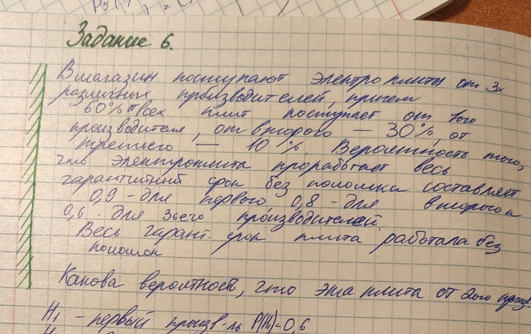 Задание 6.
В магазин поступают электроплиты от 3х
различных производителей, причем
60% от всех плит поступает от 1ого
производителя, от второго — 30%, от
третьего — 10%. Вероятность того,
что электроплита проработает весь
гарантийный срок без поломки составляет
0,9 - для первого 0,8 - для второго и
0,6 - для 3его производителей.
Весь гарант. срок плита работала без
поломок
Какова вероятность, что эта плита от 2ого произв.
H₁ - первый произв-ль P(H₁)=0,6